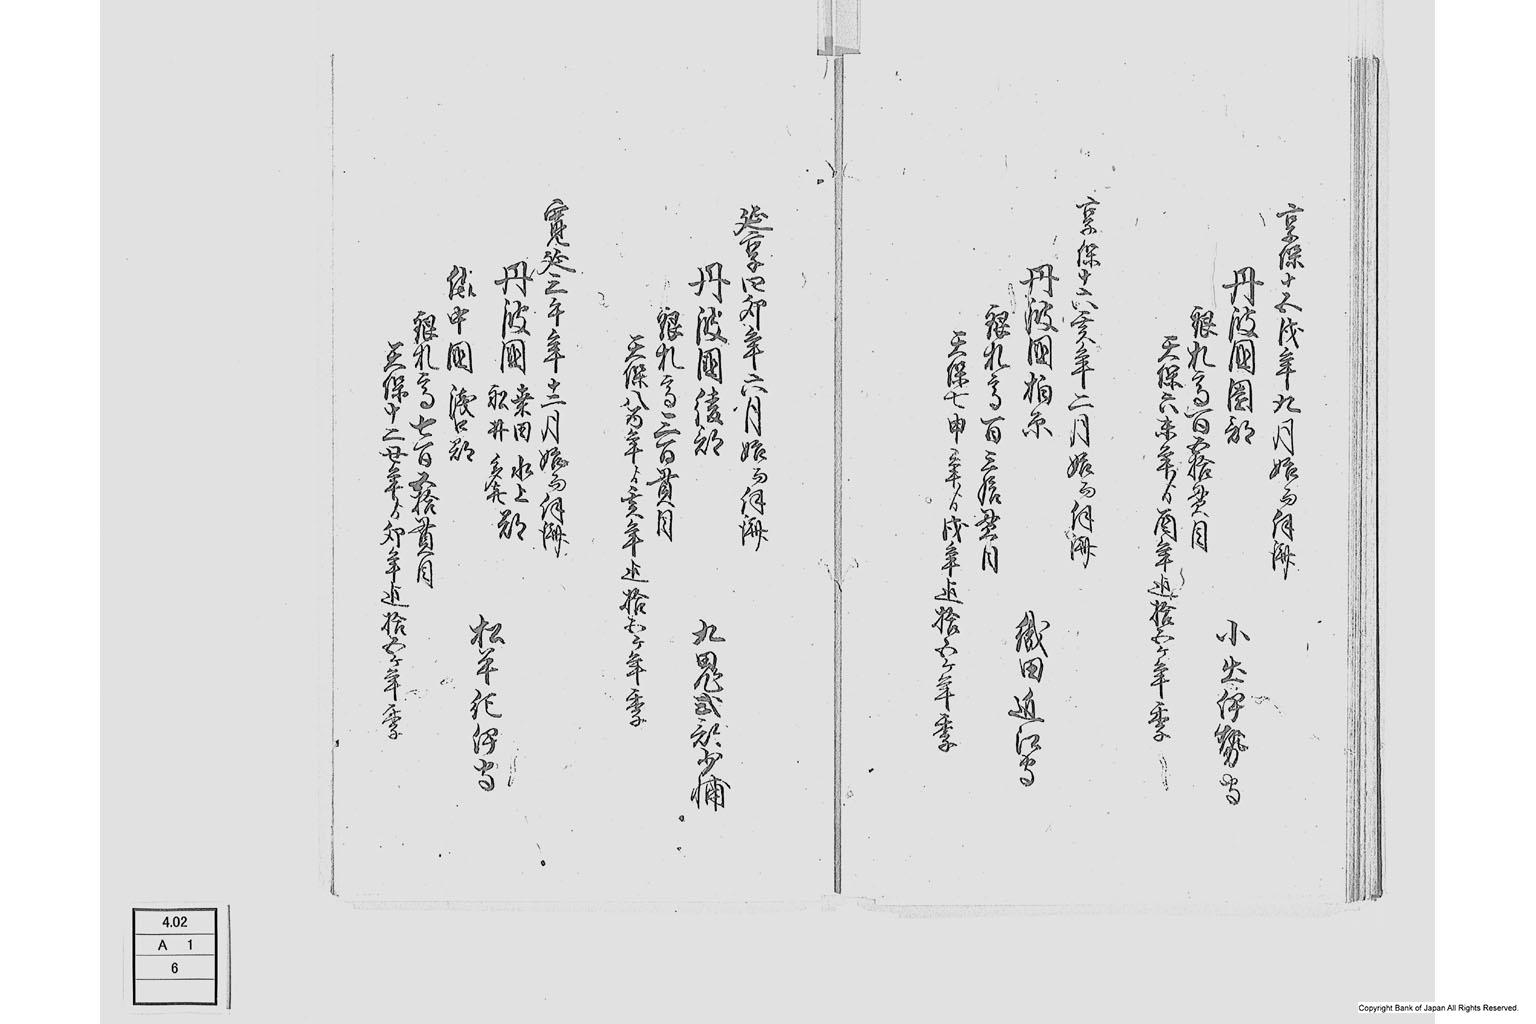 享保十五戌年九月始而伺済
丹波國園部
小出伊勢守
銀札高百五拾貫目
天保六未年ゟ酉年迄拾五ケ年季
享保十六亥年二月始而伺済
丹波國柏原
織田近江守
銀札高百三拾貫目
天保七申年ゟ戌年迄拾五ケ年季
延享四卯年六月始而伺済
丹波國綾部
九鬼式部少輔
銀札高三百貫目
天保八酉年ゟ亥年迄拾五ケ年季
寛延三午年十二月始而伺済
丹波國 桒田 氷上 船井 多紀 郡
備中國 浅口郡
松平紀伊守
銀札高七百五拾貫目
天保十二丑年ゟ卯年迄拾五ケ年季
4.02
A 1
6
Copyright Bank of Japan All Rights Reserved.